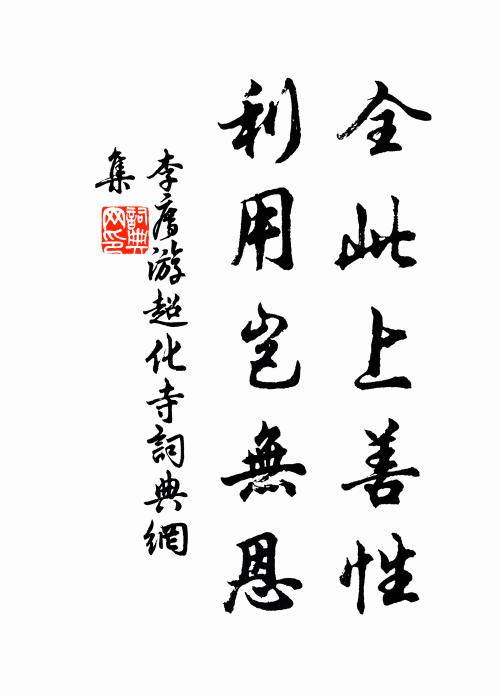 全此上善性
利用岂無恩
李廌游超化寺詞典網
集
詞典
网印